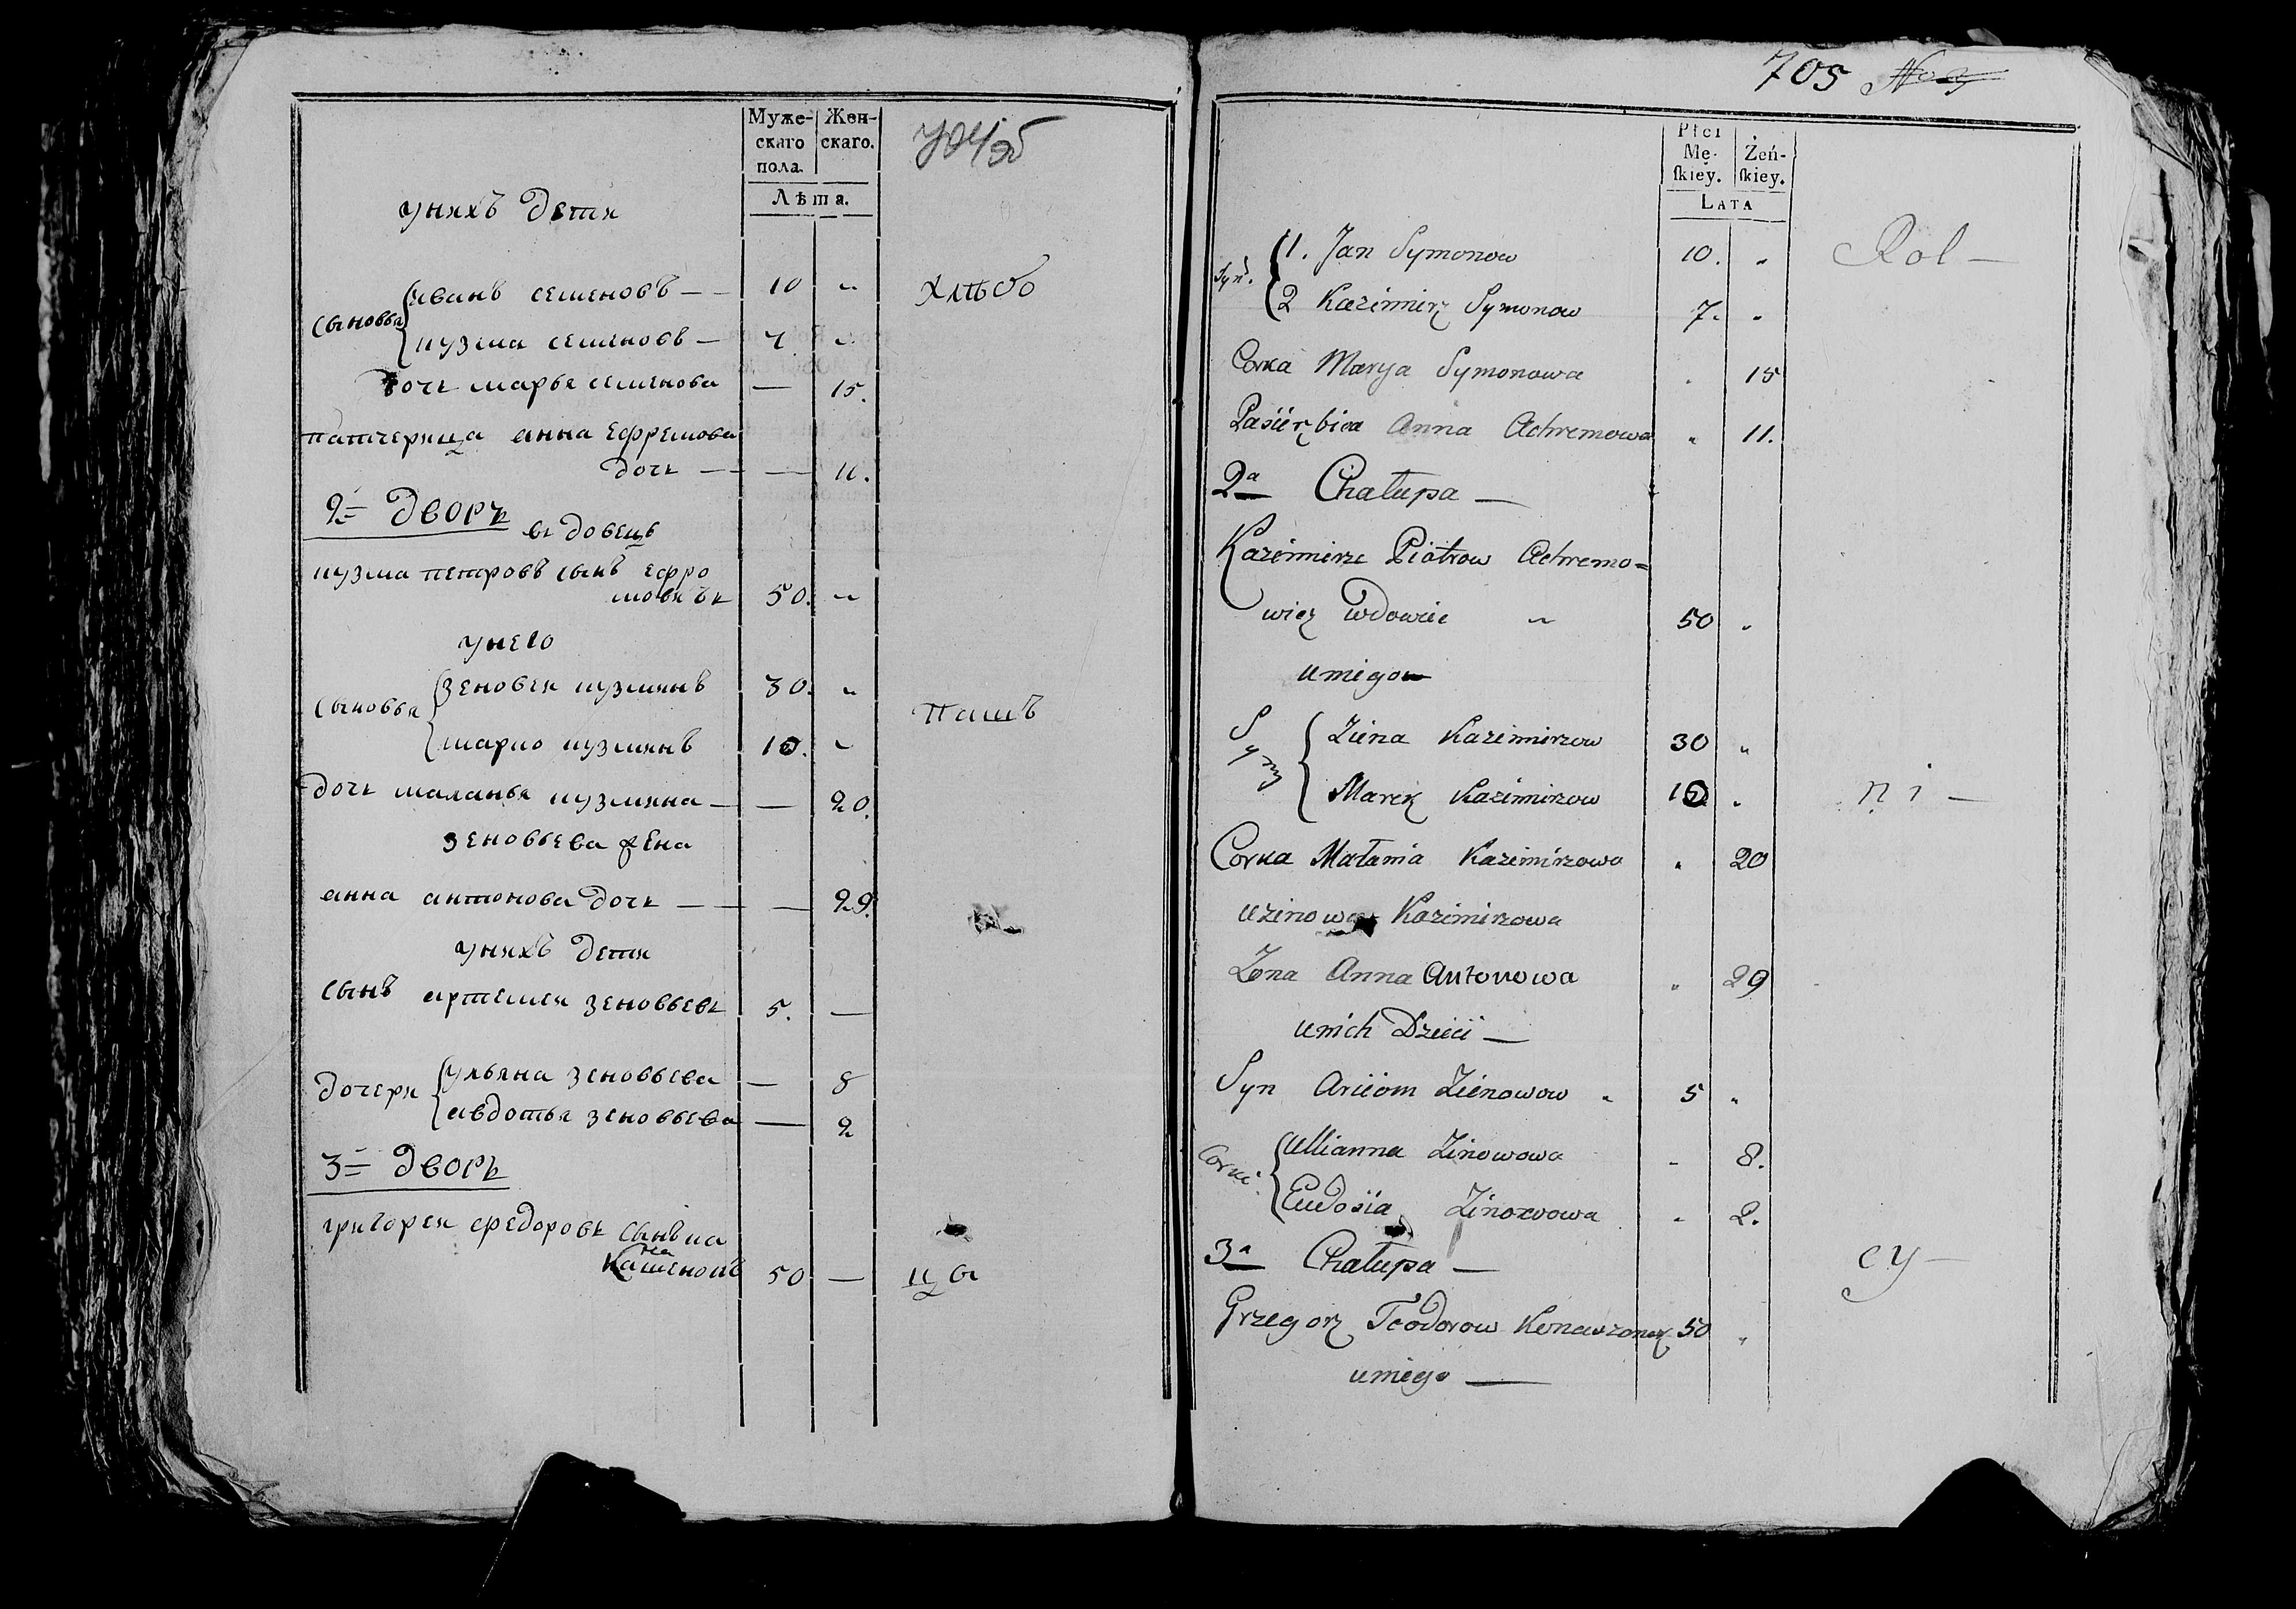 Муже-
скаго
пола.
Жен-
скаго.
Лѣта.
704 об
унихъ дети
сыновья
иванъ семеновъ — 10 "
кузма семеновъ — 7 "
хлѣбо
дочь марья семенова — 15.
патчерица анна ефремова
дочь — — 11.
2= Дворъ
вдовецъ
кузма петровъ сынъ ефре
мовичь 50. "
унего
сыновья
зеновеи кузминъ 30. "
марко кузминъ 10. "
пашъ
дочь маланья кузмина — — 20.
зеновьева жена
анна антонова дочь — — 29.
унихъ дети
сынъ артемеи зеновьевъ 5. —
дочери
ульяна зеновьева — 8
авдотья зеновьева — 2
3= Дворъ
григореи федоровъ сынъ ка
на
50 —
цы
705
Płci
Mę-
ſkiey.
Żeń-
ſkiey.
LATA
Syn.
1. Jan Symonow 10. "
Rol —
2 Kazimirz Symonow 7. "
Corka Marya Symonowa " 15
Pasierzbica Anna Achremowa " 11.
2a Chałupa —
Kazimirz Piotrow Achremo=
wicz Wdowiec " 50 "
uniego
Syny
Ziena Kazimirzow 30 "
Marek Kazimirzow 10 "
ni —
Corka Małania Kazimirzowa " 20
uzinowa Kazimirzowa
Zona Anna Antonowa " 29
unich Dzieci —
Syn Arciom Zienowow " 5 "
Corki.
Ullianna Zinowowa - 8.
Eudosia Zinowowa " 2.
3a Chałupa —
cy —
Grzegorz Teodorow Konaszonek 50 "
uniego —